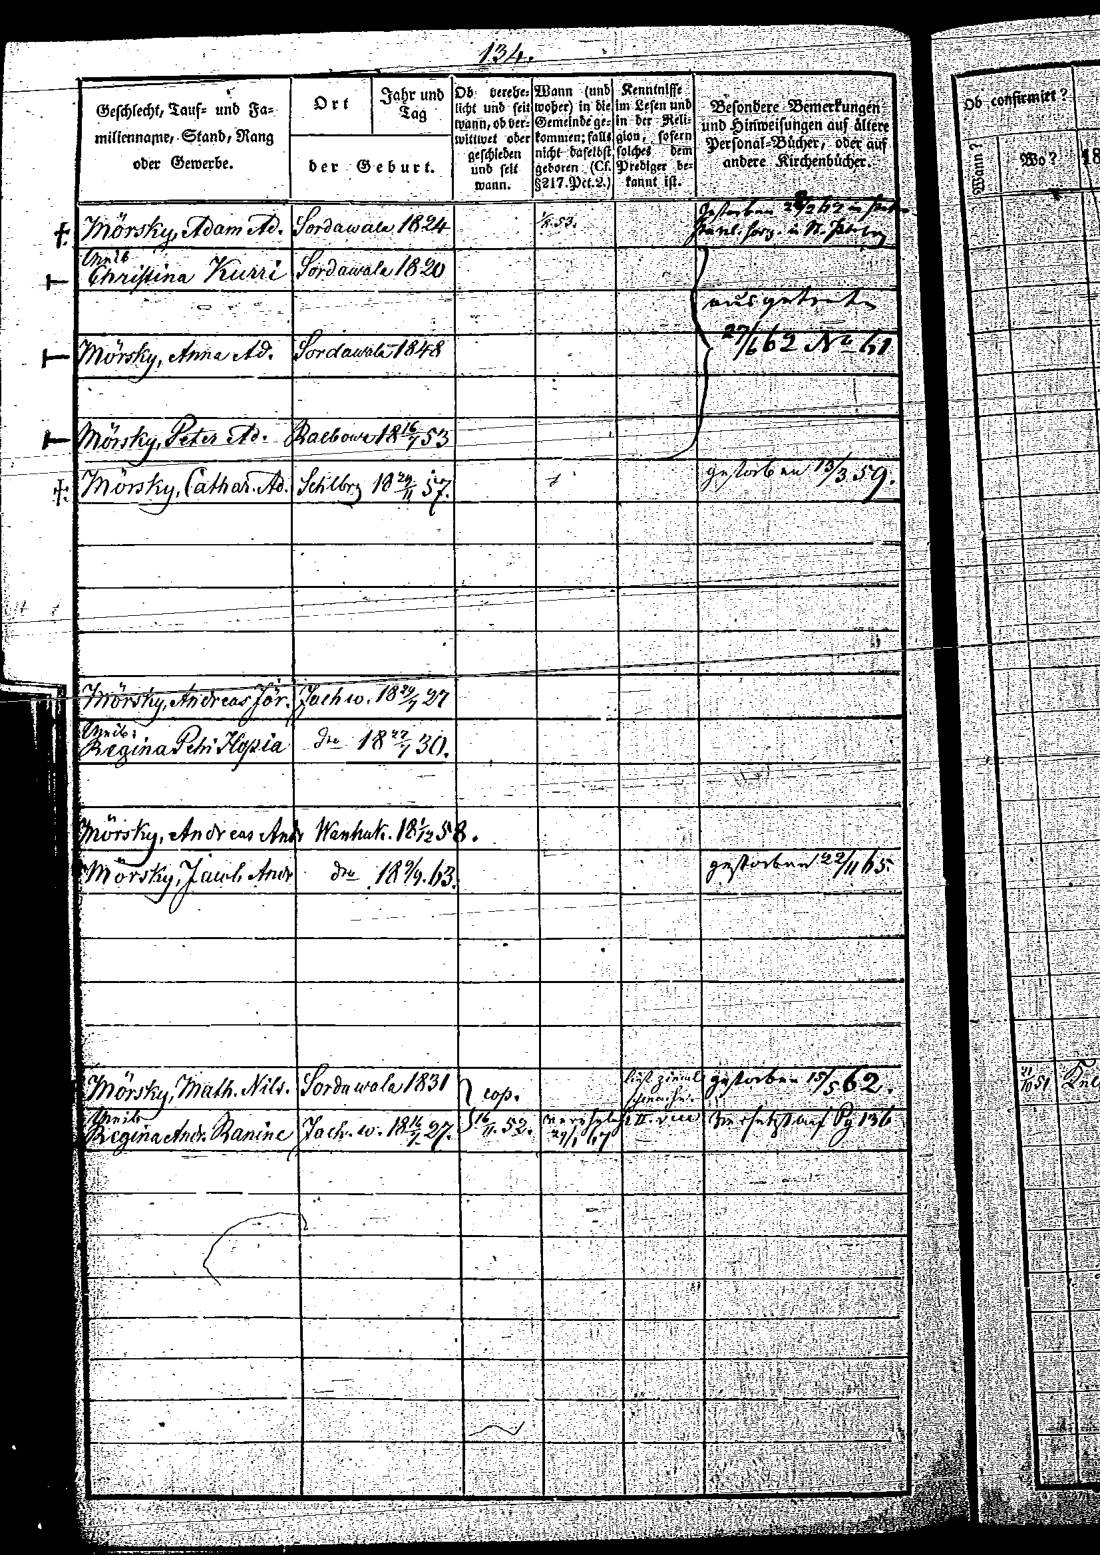 134.
Geschlecht, Tauf- und Fa-
milienname, Stand, Rang
oder Gewerbe.
Ort
Jahr und
Tag
der Geburt.
Ob verehe-
licht und seit
wann, ob ver-
wittwet oder
geschieden
und seit
wann.
Wann (und
woher) in die
Gemeinde ge-
kommen; falls
nicht daselbst
geboren (Cf.
§217. Pct. 2.)
Kenntnisse
im Lesen und
in der Reli-
gion, sofern
solches dem
Prediger be-
kannt ist.
Besondere Bemerkungen
und Hinweisungen auf ältere
Personal-Bücher, oder auf
andere Kirchenbücher.
Ob confirmirt?
Wann?
Wo?
18
Mörsky, Adam Ad. Sordawala 1824 53. gestorben
Weib
Christina Kurri Sordawala 1820
ausgetreten
Mörsky, Anna Ad. Sordawala 1848 27/6 62 No 61
Mörsky, Peter Ad. 18 16/7 53
Mörsky, Cathar. Ad. Schlbrg 18 24/11 57. gestorben 13/3 59.
Mörsky, Andreas Jör. Jach w. 18 29/7 27
Weib:
Regina Petri Hypia dto 18 27/7 30.
Mörsky, Andreas Andr Wanhak. 18 1/12 58.
Mörsky, Jacob Andr dto 18 9/9. 63. gestorben 22/11 65.
Mörsky, Math. Nils. Sordawala 1831 cop. liest ziemlich gestorben 15/5 62.
21/10 51
Weib
Regina Andr. Ranine Jach. w. 18 16/7 27. 16/11. 52. auf Pg 136